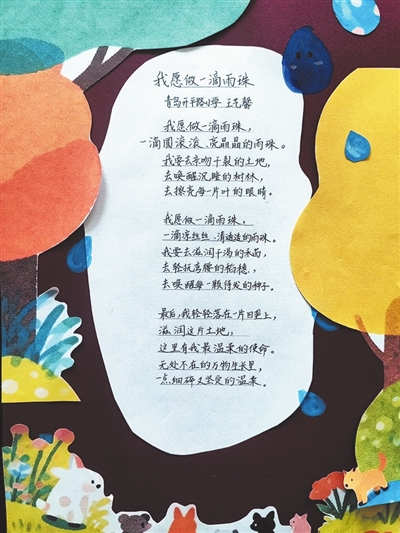 我愿做一滴雨珠
青岛开平路小学 王艺馨
我愿做一滴雨珠,
一滴圆滚滚、亮晶晶的雨珠。
我要去亲吻干裂的土地,
去唤醒沉睡的树林,
去擦亮每一片叶的眼睛。
我愿做一滴雨珠,
一滴凉丝丝、清透透的雨珠。
我要去滋润干渴的禾苗,
去轻抚弯腰的稻穗,
去唤醒每一颗待发的种子。
最后,我轻轻落在一片田里上,
滋润这片土地,
这里有我最温柔的使命。
无处不在的万物生长里,
一点细碎又坚定的温柔。